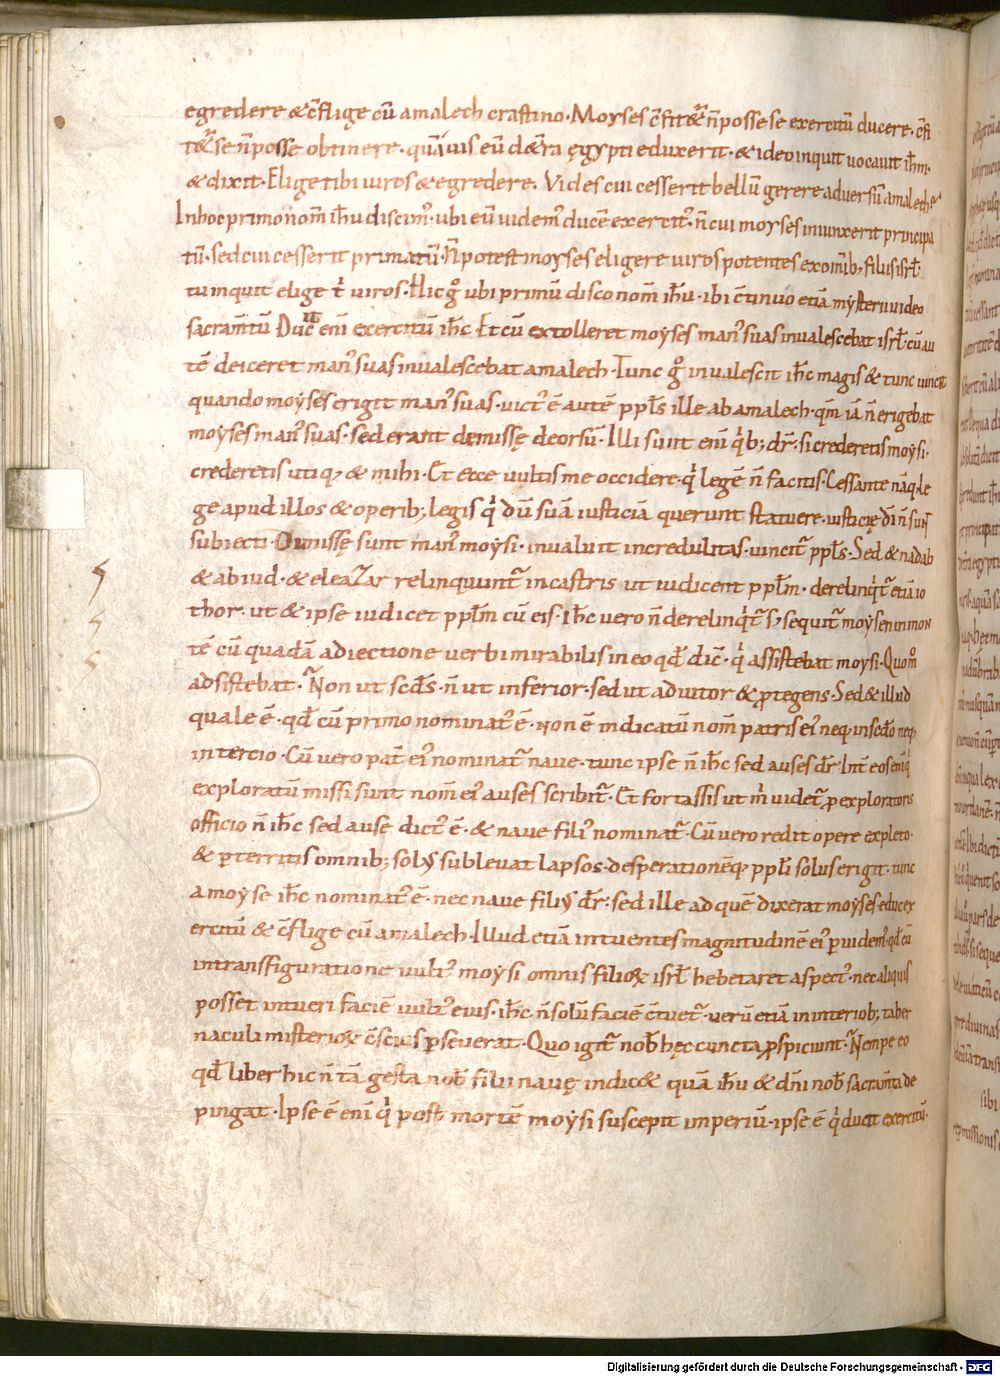 egredere &c̄flige cū amalech crastino. Moyses c̄fit&ᷓ n̄posse se exercitū ducere. c̄fi
t&ᷓ se n̄posse obtinere. quāuis eū d&̄ra ęgypti eduxerit. & ideo inquit uocauit ih̄m.
& dixit. Elige tibi uiros & egredere. Vides cui cesserit bellū gerere aduersū amalech
Inhoc primo nom̄ ih̄u discim᾽. ubi eū uidem᾽ ducē exercit᾽. n̄ cui moyses iniunxerit principa
tū. sed cui cesserit primatū. N̄ potest moyses eligere uiros potentes exomīb; filiis isrł
tu inquit elige t̄ uiros. Hic gͦ ubi primū disco nom̄ ih̄u. ibi c̄tinuo etiā mysterii uideo
sacram̄tū Duc̄ eni exercitū ih̄c. Et cū extolleret moyses man᾽ suas inualescebat isrł. cū au
tē deiceret man᾽ suas inualescebat amalech. Tunc gͦ inualescit ih̄c magis & tunc uincit
quando moyses erigit man᾽ suas. uict᾽ ē autē pplꝰs ille ab amalech. qm̄ iā n̄ erigebat
moyses man᾽ suas. sed erant demissę deorsū. Illi sunt eni q̄b; dr̄. si crederetis moysi.
crederetis utiq; & mihi. Et ecce uultis me occidere. q̄ legē n̄ facitis. Cessante nāq; le
ge apud illos & operib; legis q̄ dū suā iusticiā querunt statuere. iusticię di n̄ sunt
subiecti. Dimissę sunt man᾽ moysi. inualuit incredulitas. uincit᾽ ppłs. Sed & nadab
& abiud. & eleazar relinquunt᾽ in castris ut iudicent ppłm. derelinq̄t᾽ etiā io
thor. ut & ipse iudicet ppłm cū eis. ih̄c uero n̄ derelinq̄t᾽ s; sequit᾽ moysen in mon
tē cū quadā adiectione uerbi mirabilis in eo qđ dic̄. q̄ assistebat moysi. Quom̊
adsistebat. Non ut scđs. n̄ ut inferior. sed ut adiutor & ꝓtegens. Sed & illud
quale ē. qđ cū primo nominat᾽ ē. Non ē indicatū nom̄ patris ei᾽ neq; in scđo neq;
in tercio. Cū uero pat̄ ei᾽ nominat᾽ naue. tunc ipse n̄ ih̄c sed auses dr̄. Int̄ eos eni q̄
exploratū missi sunt nom̄ ei᾽ auses scribit᾽. Et fortassis ut m̄ uidet᾽ ꝓ exploratoris
officio n̄ ih̄c sed ause dict᾽ ē. & naue fili᾽ nominat᾽. Cū uero redit opere expleto.
& ꝑterritis omnib; sol᾽ subleuat lapsos. desperationēq; ppłi solus erigit. tunc
a moyse ih̄c nominat᾽ ē. nec naue fili᾽ dr̄. sed ille ad quē dixerat moyses. educ ex
ercitū & c̄flige cū amalech. Illud etiā intuentes magnitudinē ei᾽ ꝑuidem᾽. qđ cū
in transfiguratione uult᾽ moysi omnis filioꝝ isrł hebetaret aspect᾽. nec aliquis
posset intueri faciē uult᾽ eius. ih̄c n̄ solū faciē c̄tuet᾽. uerū etiā in interiob; taber
naculi misterioꝝ c̄scius ꝑseuerat. Quo igit᾽ nob̄ hęc cuncta ꝑspiciunt. Nempe eo
qđ liber hic n̄ tā gesta nob̄ filii nauę indic& quā ih̄u & dn̄i nob̄ sacram̄ta de
pingat. Ipse ē eni q̄ post mortē moysi suscepit imperiū. ipse ē q̄ ducit exercitū.
Digitalisierung gefördert durch die Deutsche Forschungsgemeinschaft - DFG